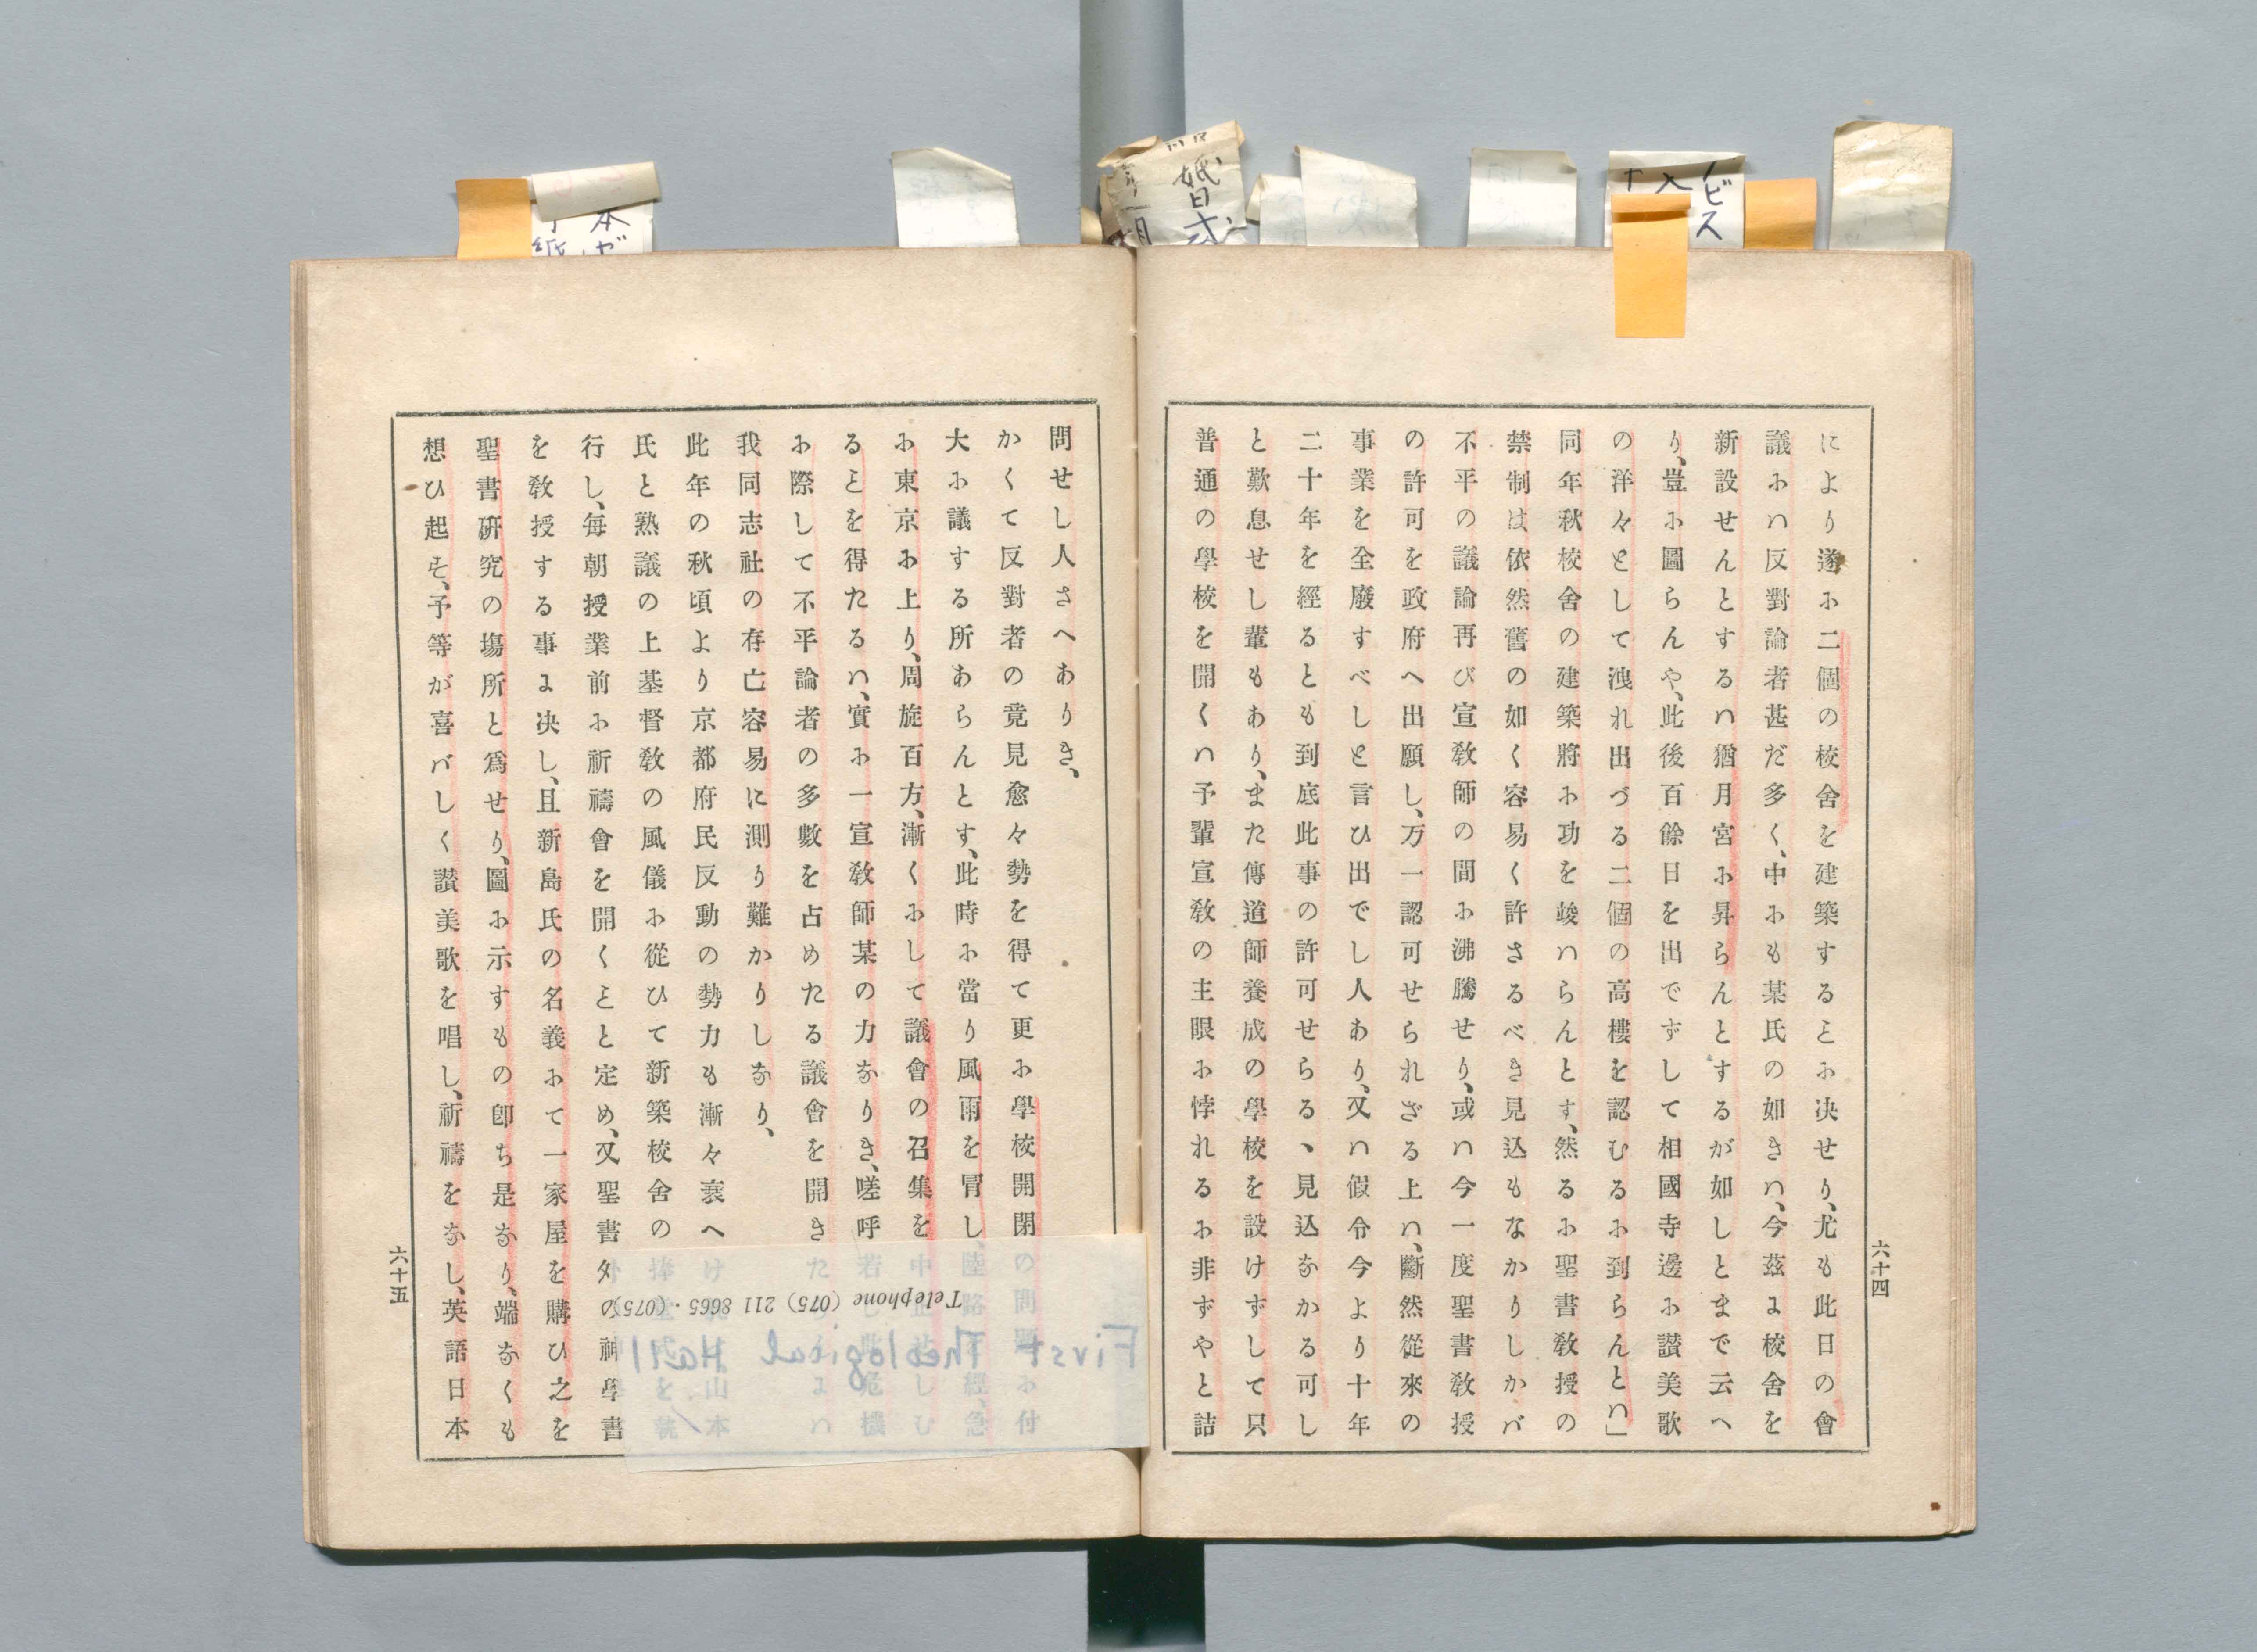 により遂に二個の校舍を建築することに决せり、尤も此日の會
議にハ反對論者甚だ多く、中にも某氏の如きハ、今茲に校舍を
新設せんとするハ猶月宮に昇らんとするが如しとまで云へ
り、豈に圖らんや、此後百餘日を出でずして相國寺邊に讃美歌
の洋々として洩れ出づる二個の高樓を認むるに到らんとハ」
同年秋校舍の建築將に功を峻ハらんとす、然るに聖書敎授の
禁制は依然舊の如く容易く許さるべき見込もなかりしかバ
不平の議論再び宣敎師の間に沸騰せり、或ハ今一度聖書敎授
の許可を政府へ出願し、万一認可せられざる上ハ、斷然從來の
事業を全廢すべしと言ひ出でし人あり、又ハ假令今より十年
二十年を經るとも到底此事の許可せらるゝ見込なかる可し
と歎息せし輩もあり、また傳道師養成の學校を設けずして只
普通の學校を開くハ予輩宣敎の主眼に悖れるに非ずやと詰
六十四
問せし人さへありき、
かくて反對者の竟見愈々勢を得て更に學校開閉の問題に付
大に議する所あらんとす、此時に當り風雨を冒し、陸路を經、急
に東京に上り、周旋百方、漸くにして議會の召集を中止せしむ
ることを得たるハ、實に一宣敎師某の力なりき、嗟呼若し此危機
に際して不平論者の多數を占めたる議會を開きたらんにハ
我同志社の存亡容易に測り難かりしなり、
此年の秋頃より京都府民反動の勢力も漸々衰へけ 山本
氏と熟議の上基督敎の風儀に從ひて新築校舍の捧 を執
行し、毎朝授業前に祈禱會を開くことと定め、又聖書外の神學書
を敎授する事に决し、且新島氏の名義にて一家屋を購ひ之を
聖書硏究の塲所と爲せり、圖に示すもの卽ち是なり、端なくも
想ひ起す、予等が喜バしく讃美歌を唱し、祈禱をなし、英語日本
六十五
Telephone (075) 211 8665 · (075)
First Theological Hall
婚
日
式
ビス
本